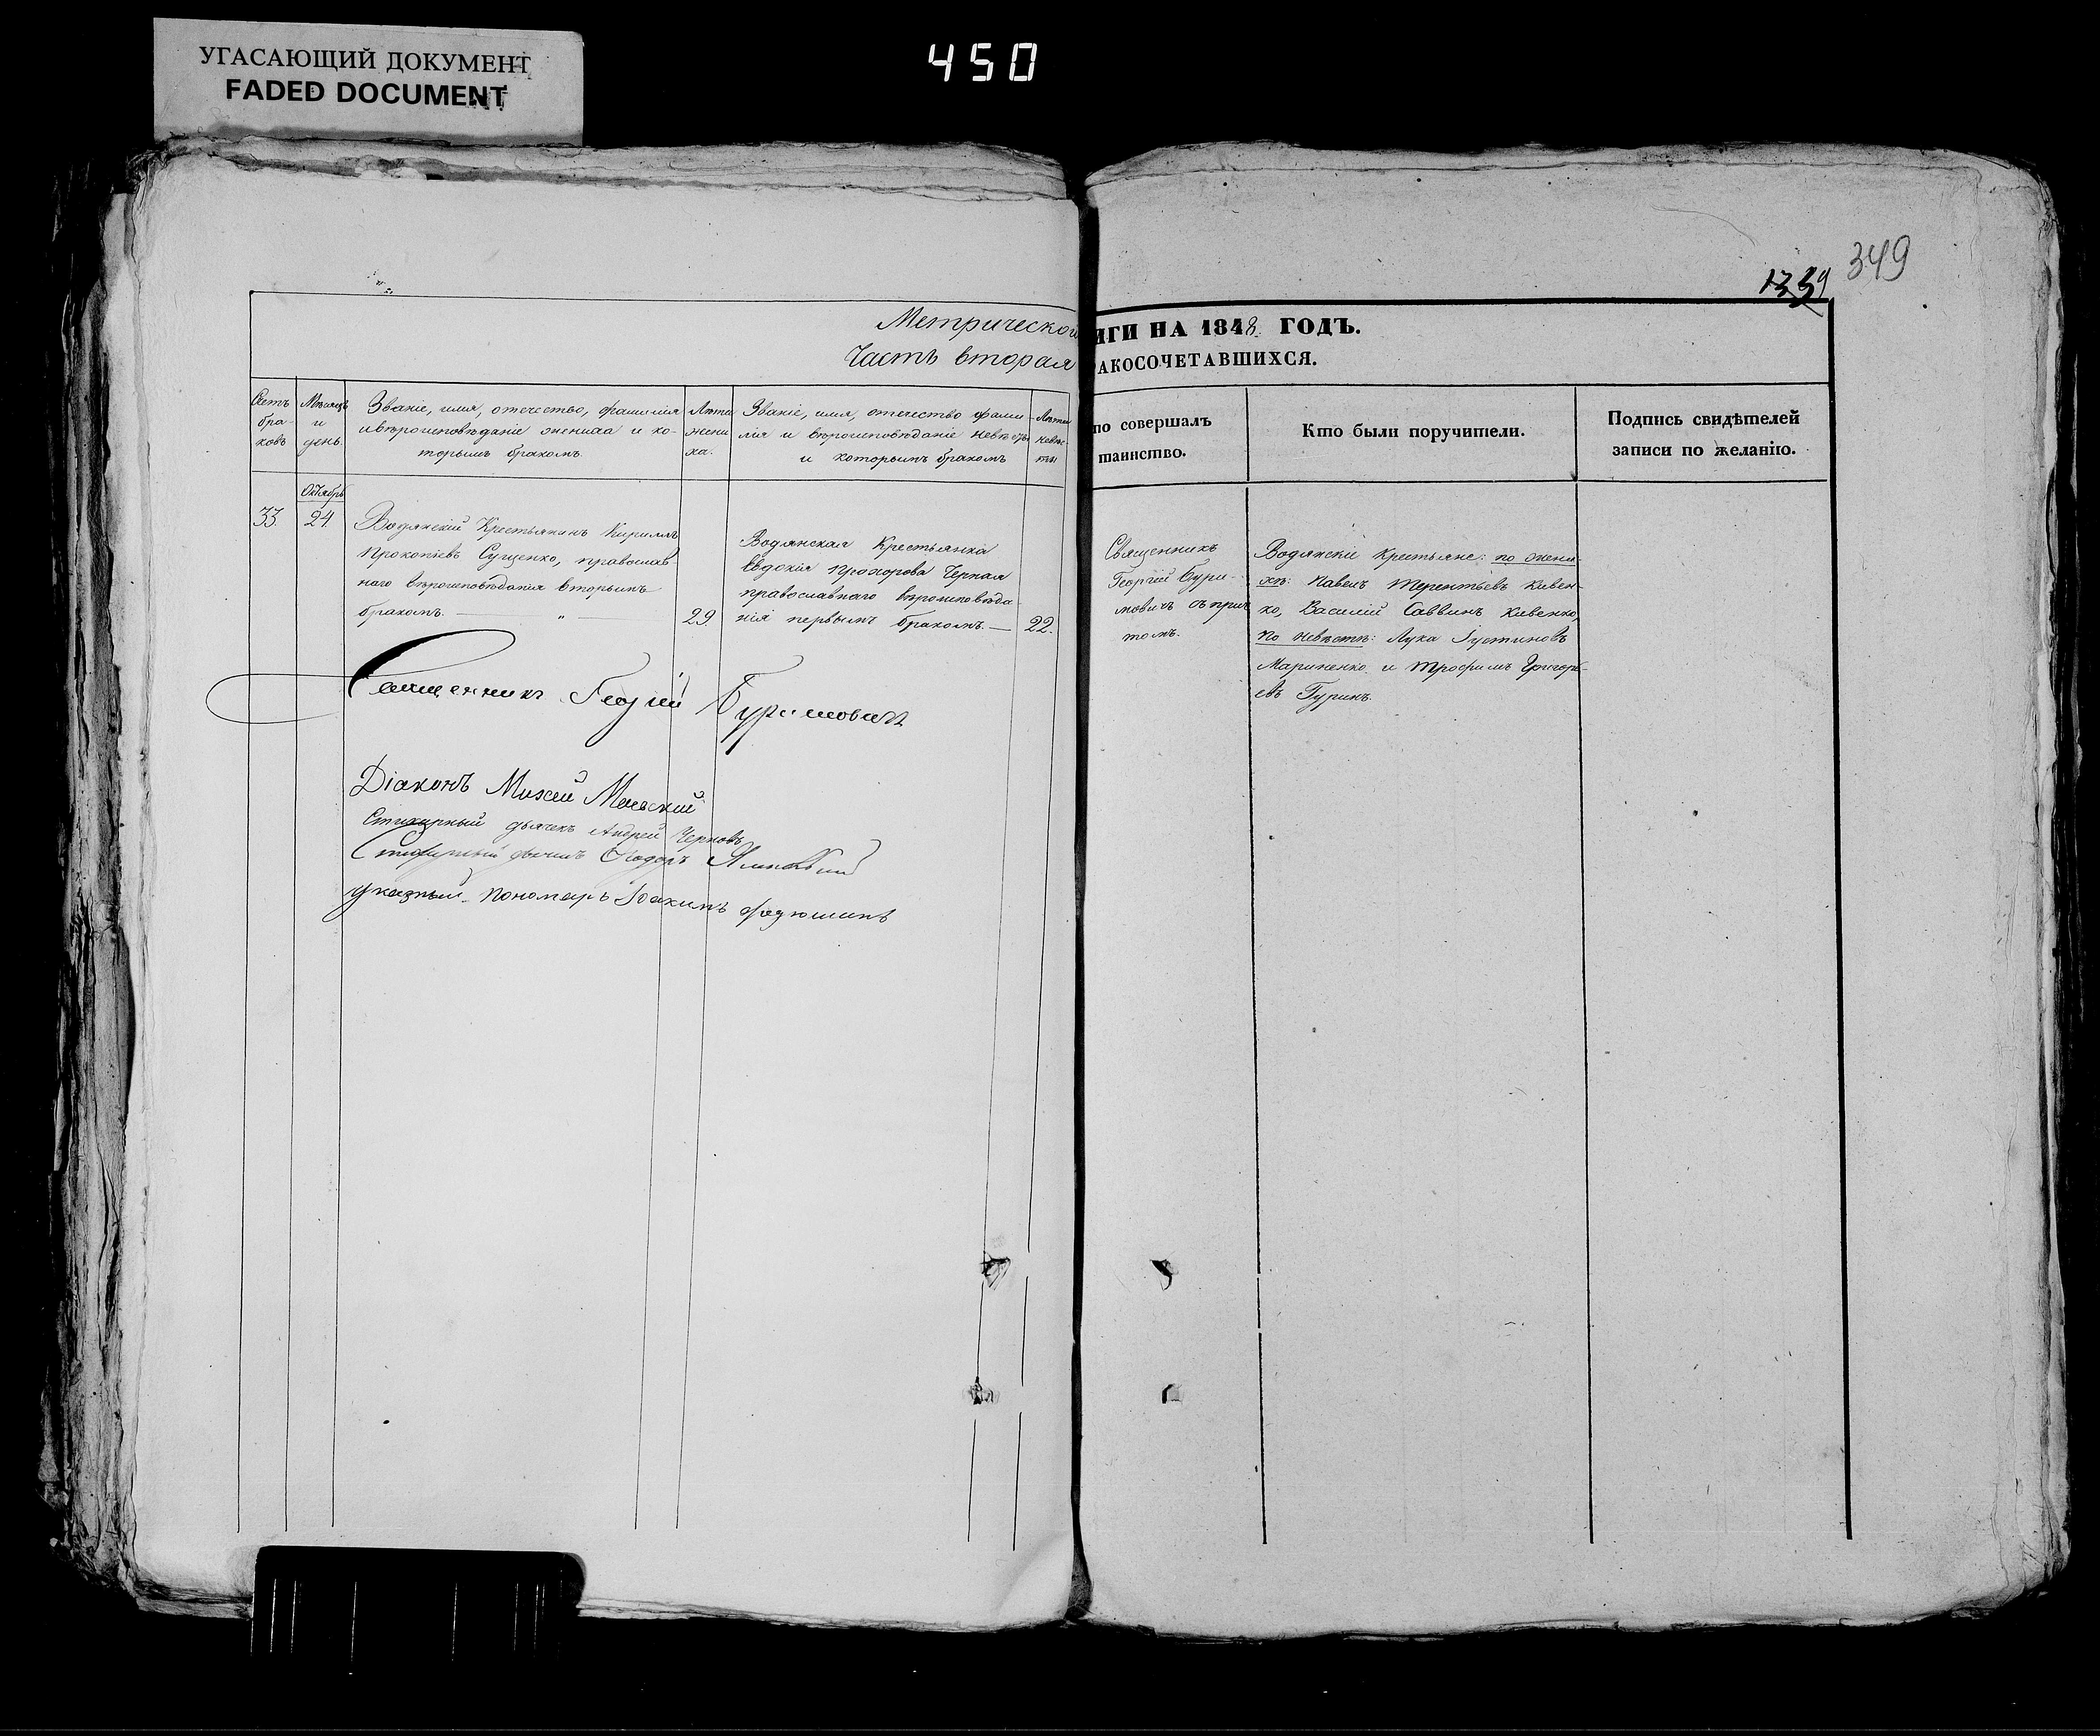 УГАСАЮЩИЙ ДОКУМЕНТ
FADED DOCUMENT
450
349
1339
Метрической
Часть вторая
ИГИ НА 1848 ГОДЪ.
РАКОСОЧЕТАВШИХСЯ.
Счетъ
бра-
ковъ
Мѣсяцъ
и
день.
Званіе, имя, отечество, фамилія
и вѣроисповѣданіе жениха и ко-
торымъ бракомъ
Лѣта
жени
ха.
Званіе, имя, отечество фами-
лія и вѣроисповѣданіе невѣсты
и которымъ бракомъ
Лѣта
невѣс
ты
по совершалъ
таинство.
Кто были поручители.
Подпись свидѣтелей
записи по желанію.
Октябрь
33. 24.
Водянскій Крестьянинъ Кириллъ
Прокопіевъ Сущенко, православ-
наго вѣроисповѣданія вторымъ
бракомъ. — „ — 29.
Водянская Крестьянка
Евдокія Прохорова Черная
православнаго вѣроисповѣда-
нія первымъ бракомъ. — 22.
Священникъ
Георгій Бури-
мовичъ съ прич
томъ.
Водянскіе Крестьяне: по жени-
хѣ: Павелъ Терентьевъ Кивен-
ко, Василій Саввинъ Кивенко,
по невѣстѣ: Лука Іустиновъ
Мариненко и Трофимъ Григорь-
евъ Гуринъ.
Священникъ Георгій Буримовичъ
Діаконъ Михей Маевскій
Стихарный дьячекъ Андрей Черновъ
Стихарный дьячекъ Ѳеодоръ
указный пономарь Іоакимъ Федюшинъ